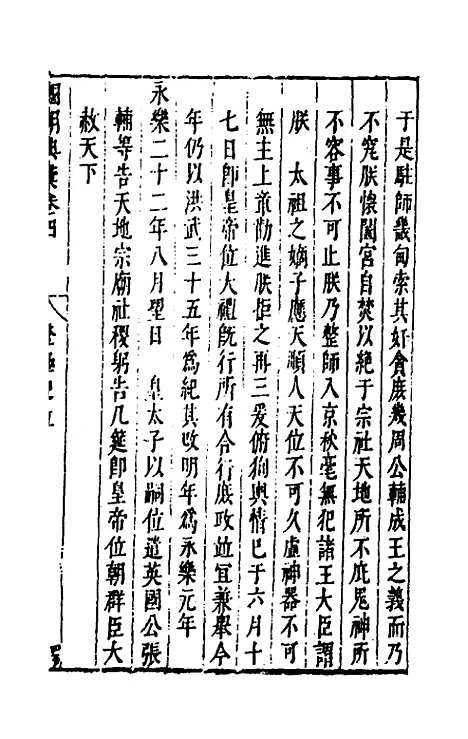 于是駐師畿甸索其奸貪庶幾周公輔成王之義而乃
不究朕懷闔宮自焚以絶于宗社天地所不庇鬼神所
不容事不可止朕乃整師入京秋毫無犯諸王大臣謂
朕 太祖之嫡子應天順人天位不可久虛神器不可
無主上章勸進朕拒之再三爰俯狥輿情已于六月十
七日卽皇帝位大禮旣行所有合行庶政並宜兼舉今
年仍以洪武三十五年爲紀其改明年爲永樂元年
永樂二十二年八月望日 皇太子以嗣位遣英國公張
輔等告天地宗廟社稷躬告几筵卽皇帝位朝群臣大
赦天下
國朝典彙卷四 登極 五